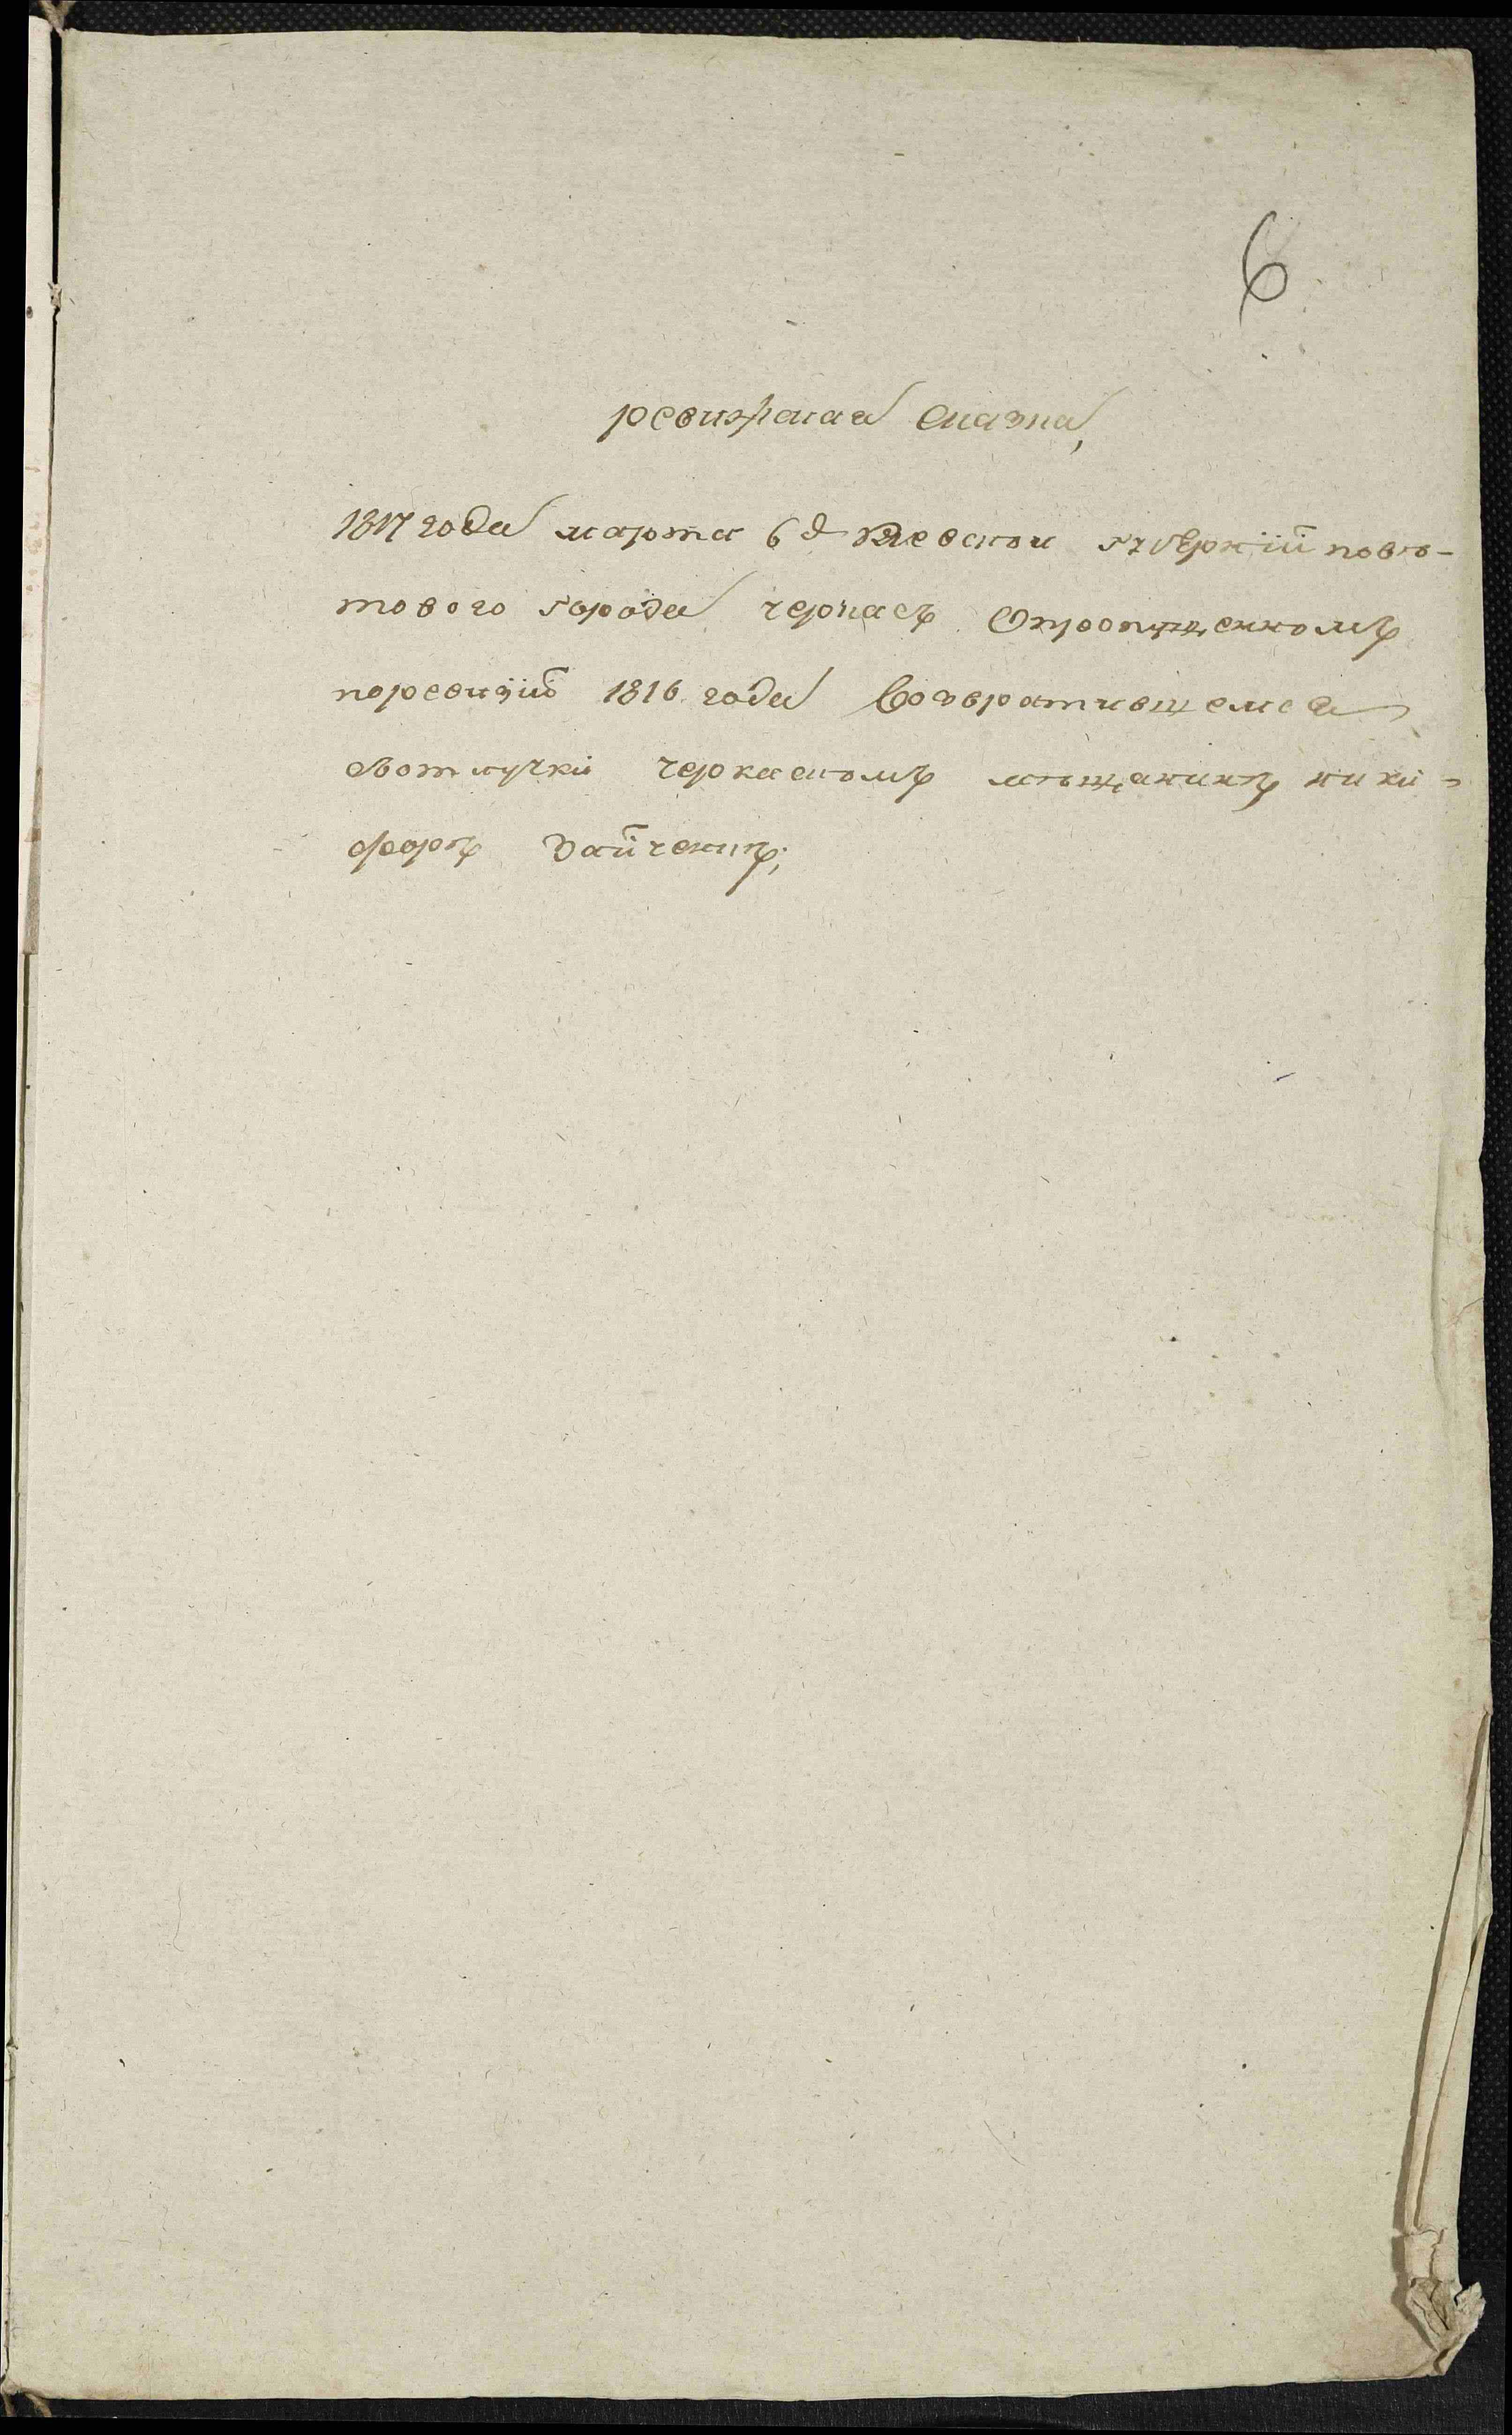 6
ревизская сказка,
1817 года марта 6 д киевской губернїи повѣ-
тового города черкасъ Опропущенномъ
поревизїи 1816 года Возвратившемся
сьотлучки черкаскомъ мѣщанинѣ ники-
форѣ Зайченкѣ;